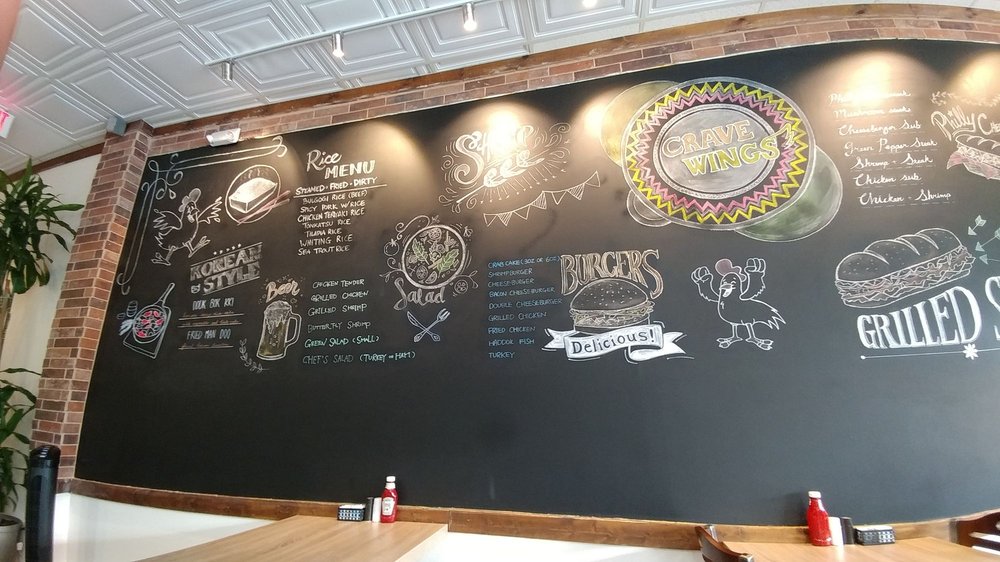 Rice
MENU
STEAMED · FRIED · DIRTY
BULGOGI RICE (BEEF)
SPICY PORK W/RICE
CHICKEN TERIYAKI RICE
TONKATSU RICE
TILAPIA RICE
WHITING RICE
SEA TROUT RICE
KOREAN
& STYLE
DDUK BUK KKI
FRIED MAN DOO
Beer
CHICKEN TENDER
GRILLED CHICKEN
GRILLED SHRIMP
BUTTERFLY SHRIMP
GREEN SALAD (SMALL)
CHEF'S SALAD (TURKEY or HAM)
Salad
CRAB CAKE (3OZ OR 6OZ)
SHRIMP BURGER
CHEESEBURGER
BACON CHEESEBURGER
DOUBLE CHEESEBURGER
GRILLED CHICKEN
FRIED CHICKEN
HADDOK FISH
TURKEY
BURGERS
Delicious!
CRAVE
WINGS
Mushroom Steak
Cheeseburger Sub
Green Pepper Steak
Shrimp - Steak
Chicken Sub
Chicken - Shrimp
Philly
GRILLED S